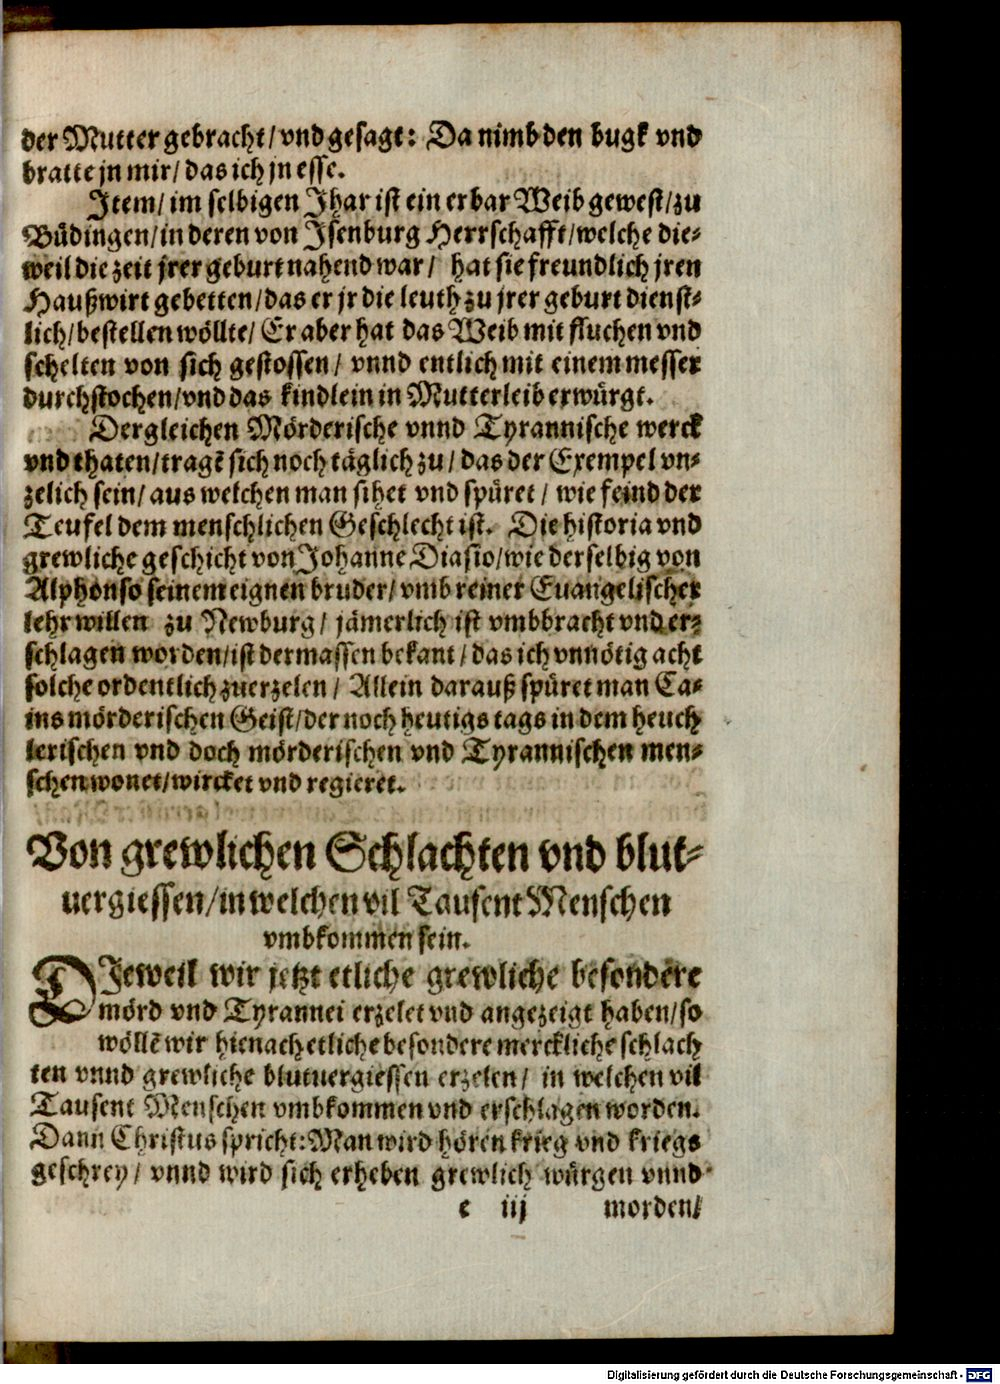 der Mutter gebracht/ vnd gesagt: Da nimb den bugk vnd
bratte jn mir/ das ich jn esse.
Item/ im selbigen Jhar ist ein erbar Weib gewest/ zu
Büdingen/ in deren von Isenburg Herrschafft/ welche die-
weil die zeit jrer geburt nahend war/ hat sie freundlich jren
Haußwirt gebetten/ das er jr die leuth zu jrer geburt dienst-
lich/ bestellen wöllte/ Er aber hat das Weib mit fluchen vnd
schelten von sich gestossen/ vnnd entlich mit einem messer
durchstochen/ vnd das kindlein in Mutterleib erwürgt.
Dergleichen Mörderische vnnd Tyrannische werck
vnd thaten/ tragẽ sich noch täglich zu/ das der Exempel vn-
zelich sein/ aus welchen man sihet vnd spüret/ wie feind der
Teufel dem menschlichen Geschlecht ist. Die historia vnd
grewliche geschicht von Johanne Diasio/ wie derselbig von
Alphonso seinem eignen bruder/ vmb reiner Euangelischer
lehr willen zu Newburg/ jämerlich ist vmbbracht vnd er-
schlagen worden/ ist dermassen bekant/ das ich vnnötig acht
solche ordentlich zuerzelen/ Allein darauß spüret man Ca-
ins mörderischen Geist/ der noch heutigs tags in dem heuch
lerischen vnd doch mörderischen vnd Tyrannischen men-
schen wonet/ wircket vnd regieret.
Von grewlichen Schlachten vnd blut-
uergiessen/ in welchen vil Tausent Menschen
vmbkommen sein.
DIeweil wir jetzt etliche grewliche besondere
mörd vnd Tyrannei erzelet vnd angezeigt haben/ so
wöllẽ wir hienach etliche besondere merckliche schlach
ten vnnd grewliche blutuergiessen erzelen/ in welchen vil
Tausent Menschen vmbkommen vnd erschlagen worden.
Dann Christus spricht: Man wird hören krieg vnd kriegs
geschrey/ vnnd wird sich erheben grewlich würgen vnnd
e iij morden/
Digitalisierung gefördert durch die Deutsche Forschungsgemeinschaft - DFG